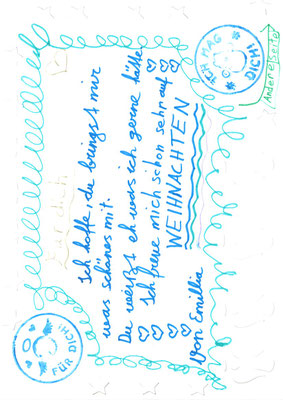 ICH MAG DICH!
Andere Seite
Für dich
Ich hoffe du bringst mir
was schönes mit.
Du weißt eh was ich gerne hätte
Ich freue mich schon sehr auf
WEIHNACHTEN
Von Emillia
FÜR DICH!